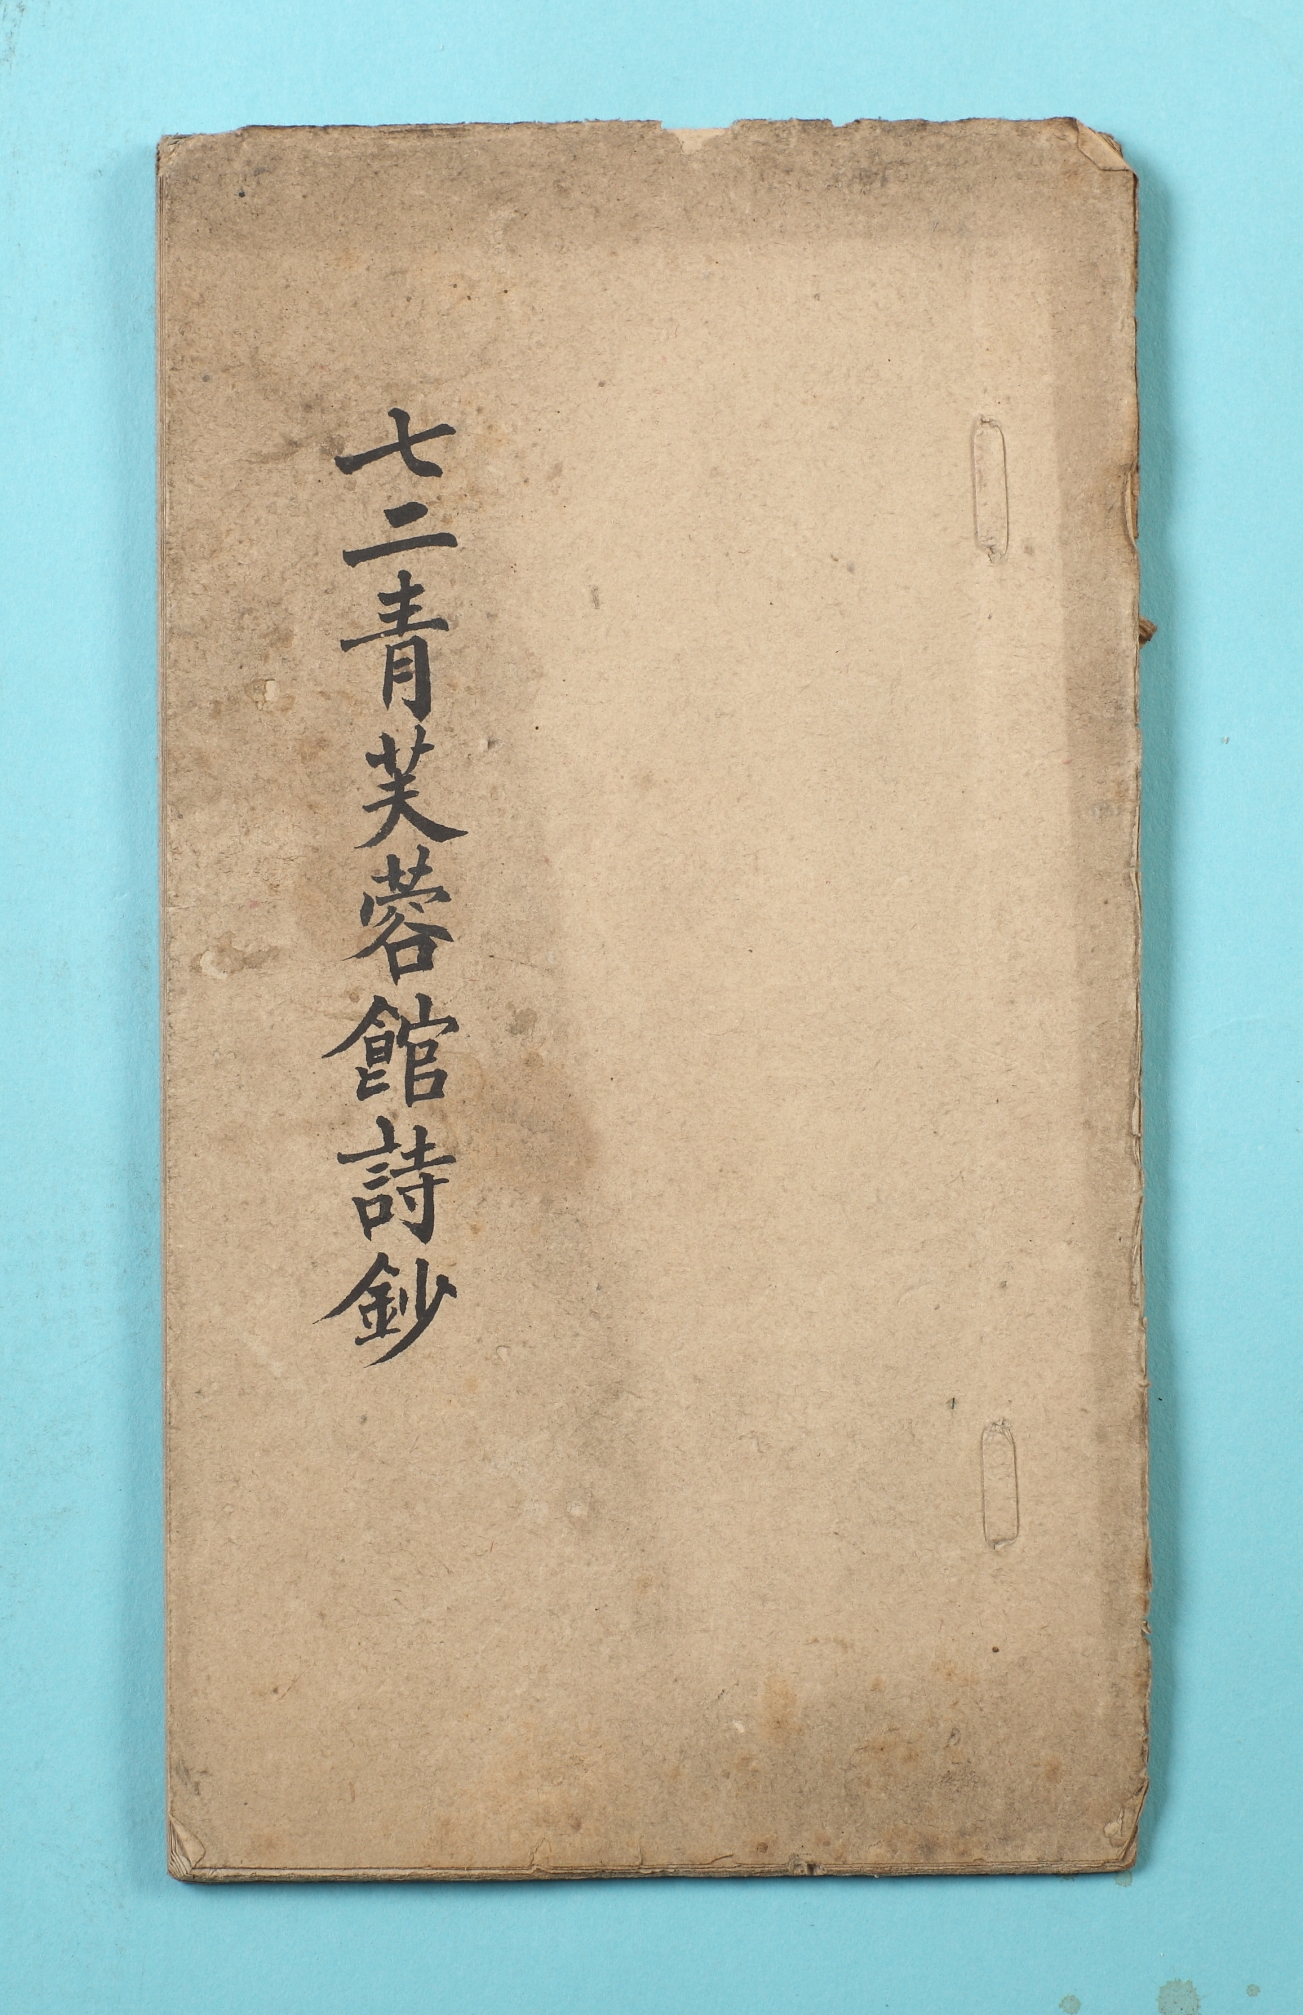 七二青芙蓉館詩鈔